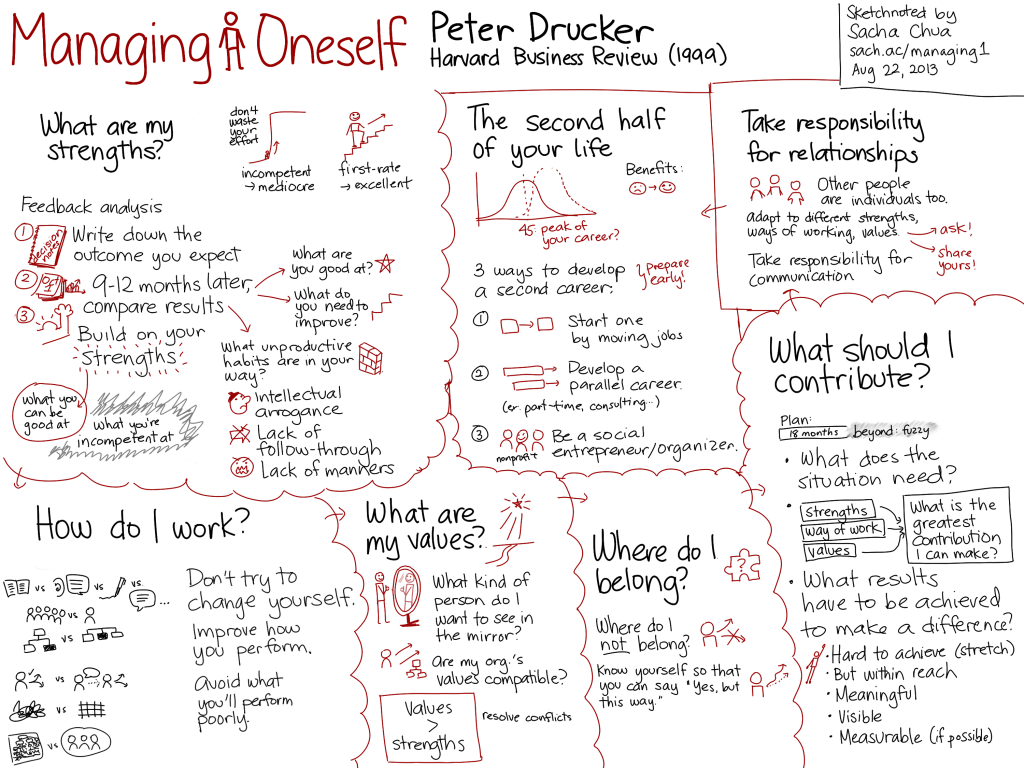 Managing Oneself
Peter Drucker
Harvard Business Review (1999)
Sketchnoted by
Sacha Chua
sach.ac/managing1
Aug 22, 2013
What are my
strengths?
don't
waste
your
effort
incompetent
→ mediocre
first-rate
→ excellent
Feedback analysis
1
Decision
notes
Write down the
outcome you expect
2
9-12 months later,
compare results
3
Build on your
strengths
What are
you good at?
What do
you need to
improve?
What unproductive
habits are in your
way?
Intellectual
arrogance
Lack of
follow-through
Lack of manners
what you
can be
good at
what you're
incompetent at
How do I work?
vs
vs
vs
vs.
...
vs
vs
vs
vs
vs
Don't try to
change yourself.
Improve how
you perform.
Avoid what
you'll perform
poorly.
What are
my values?
What kind of
person do I
want to see in
the mirror?
Are my org.'s
values compatible?
Values
>
strengths
resolve conflicts
Where do I
belong?
?
Where do I
not belong?
Know yourself so that
you can say "Yes, but
this way."
What should I
contribute?
Plan:
18 months
beyond: fuzzy
• What does the
situation need?
• strengths
way of work
values
What is the
greatest
contribution
I can make?
• What results
have to be achieved
to make a difference?
• Hard to achieve (stretch)
• But within reach
• Meaningful
• Visible
• Measurable (if possible)
Take responsibility
for relationships
Other people
are individuals too.
adapt to different strengths,
ways of working, values.
→ ask!
→ share
yours!
Take responsibility for
communication
The second half
of your life
Benefits:
45: peak of
your career?
3 ways to develop
a second career:
prepare
early!
1
Start one
by moving jobs
2
Develop a
parallel career.
(ex. part-time, consulting...)
3
nonprofit
Be a social
entrepreneur/organizer.